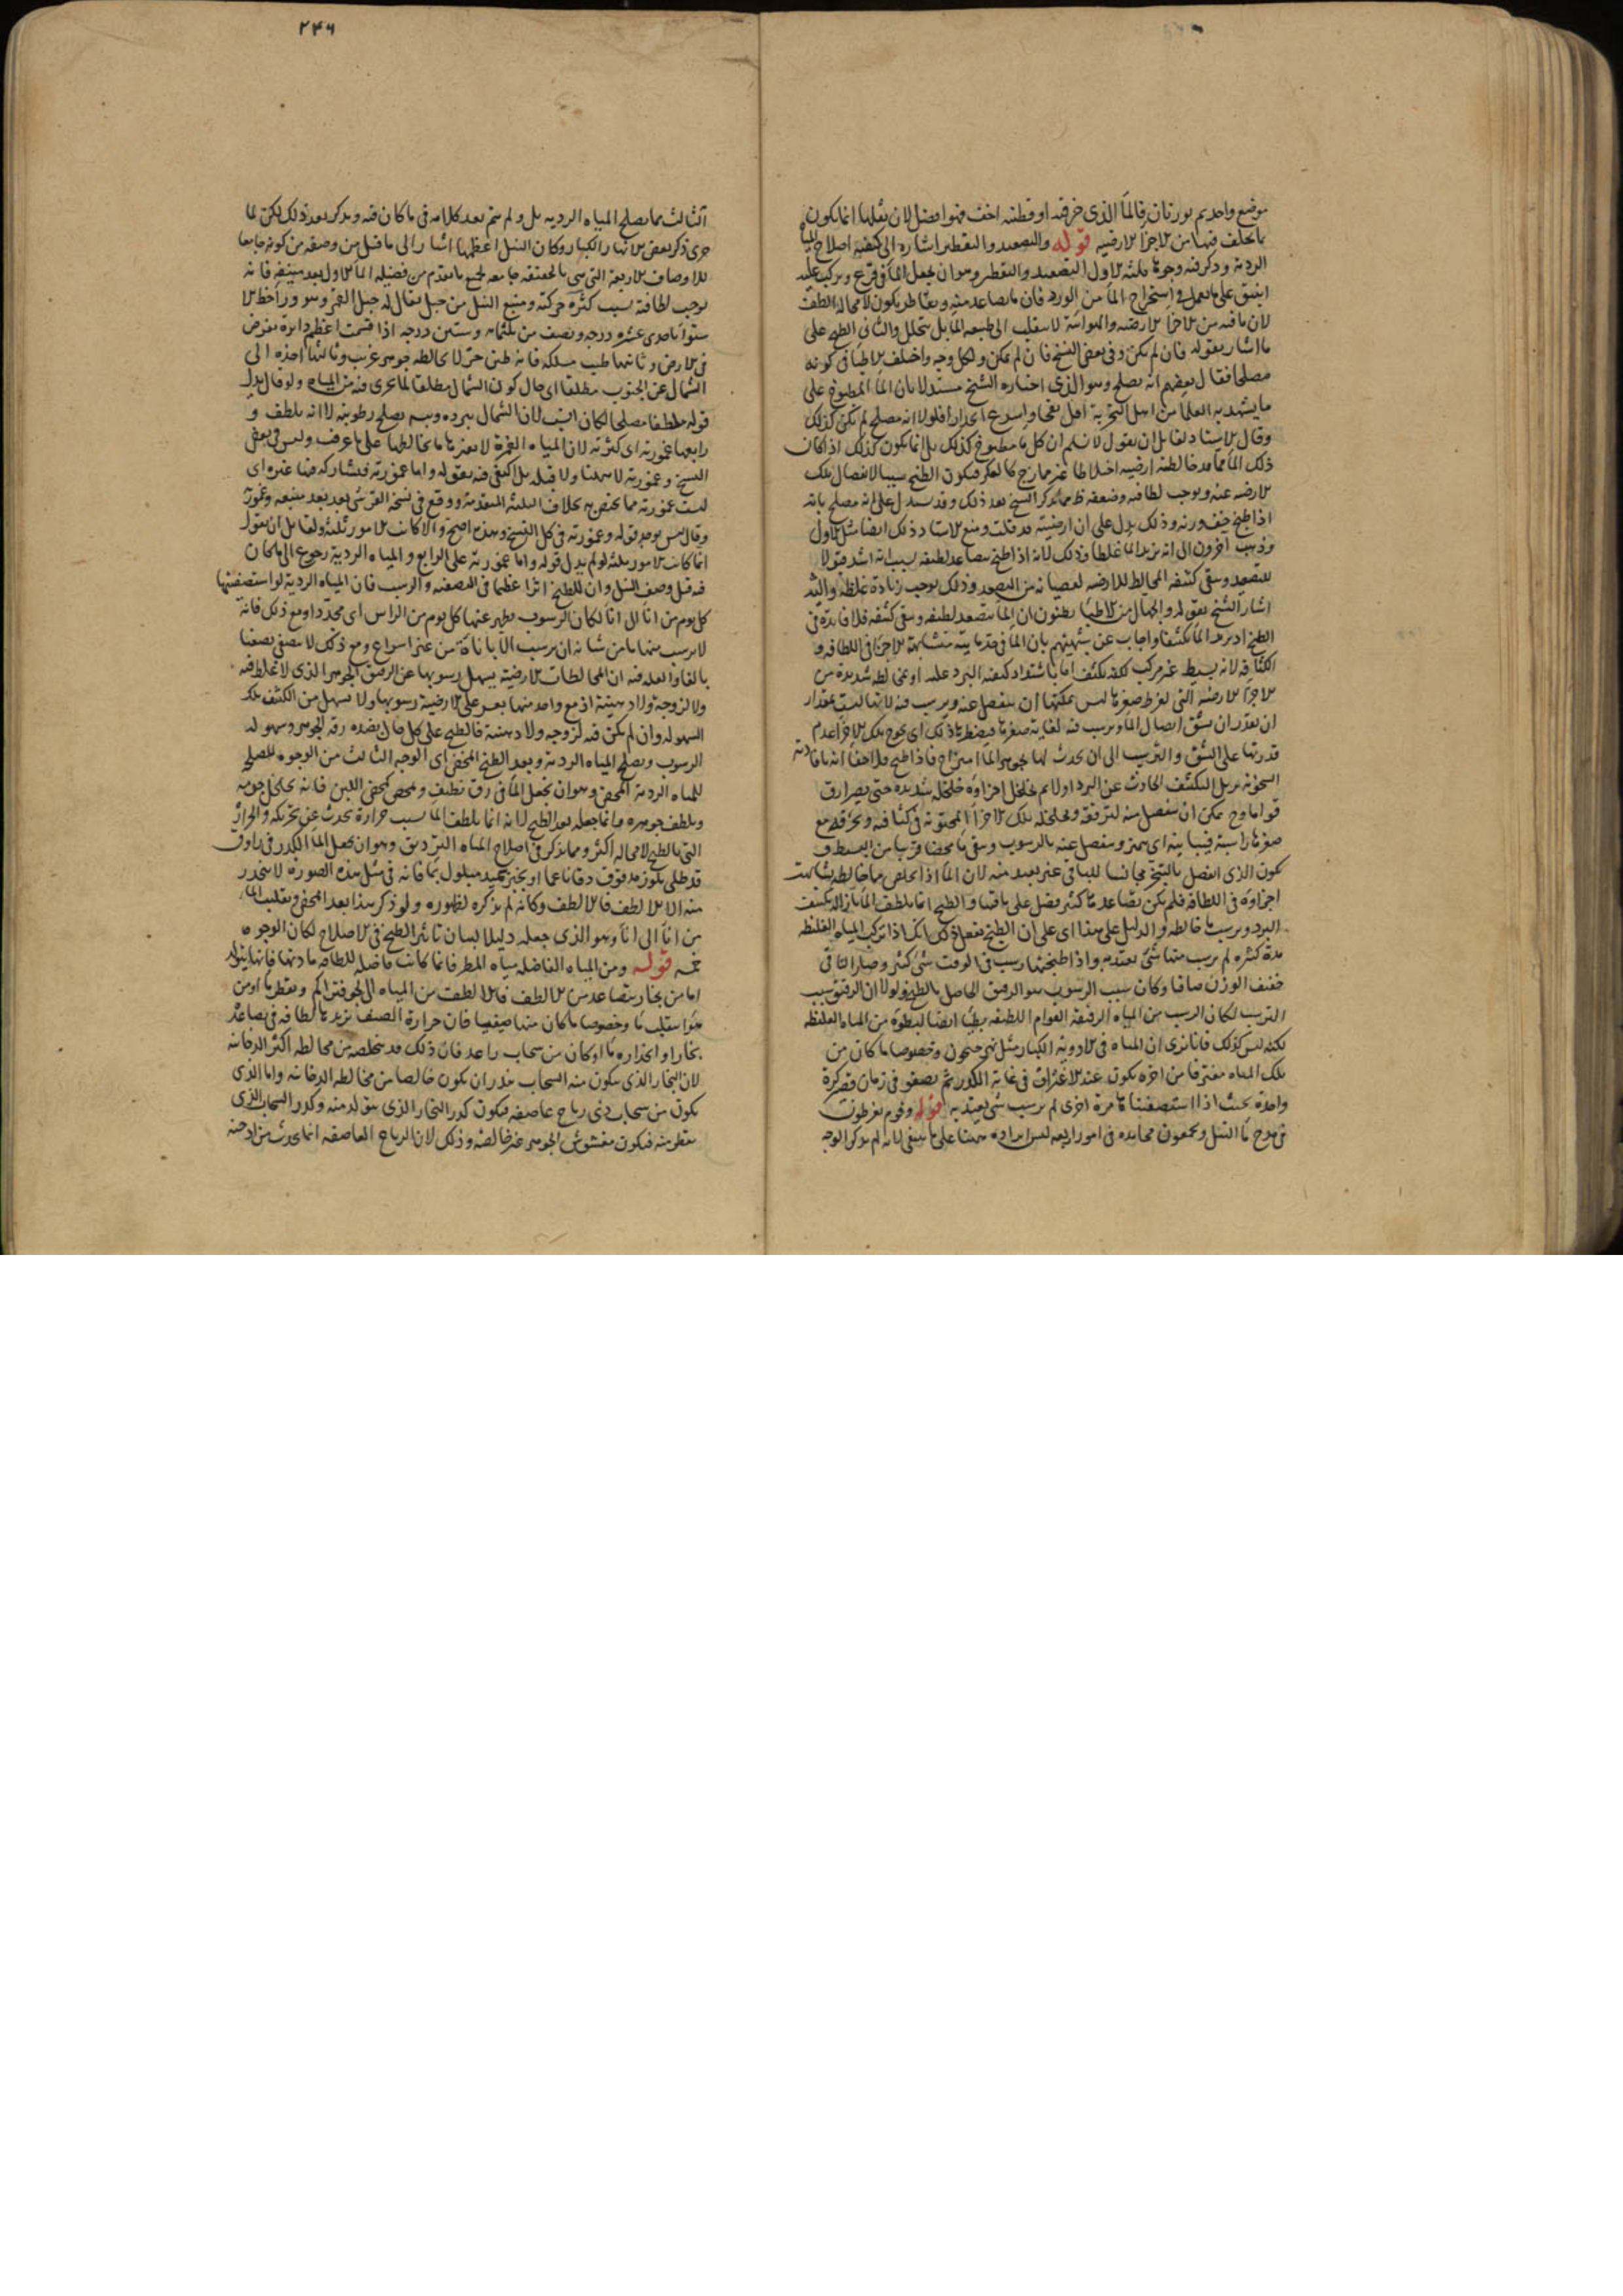 ٢٤٦
موضع واحد ثم يوزنان فالماء الذى خرقته او قطنته اخف فهو افضل لان ثقلها انما يكون
بما تخلف فيها من الاجزاء الارضية قوله والتصعيد والتقطير اشارة الى كيفية اصلاح المياه
الردية وذكر فيه وجوها ثلثة الاول التصعيد والتقطير وهو ان يجعل الماء فى قرع ويركب عليه
انبيق على ما يعمل فى استخراج الماء من الورد فان ما يصاعد منه ويتقاطر يكون لا محالة الطف
لان ما فيه من الاجزاء الارضية والهوائية لا ينقلب الى طبيعة الماء بل يتحلل والثانى الطبخ على
ما اشار بقوله فان لم يمكن وفى بعض النسخ فان لم يمكن ولكل وجه واختلف الاطباء فى كونه
مصلحا فقال بعضهم انه يصلح وهو الذى اختاره الشيخ مستدلا بان الماء المطبوخ على
ما يشهد به العلماء من اهل التجربة اقل نفخا واسرع انحدارا فلولا انه مصلح لم يكن كذلك
وقال الاستاد لقائل ان يقول لا نسلم ان كل ماء مطبوخ كذلك بل انما يكون كذلك اذا كان
ذلك الماء مما قد خالطته ارضية اختلاطا غير ممازج كالعكر فيكون الطبخ سببا لانفصال تلك
الارضية عنه ويوجب لطافته وضعفه ظ مما يذكر الشيخ بعد ذلك وقد يستدل على انه مصلح بانه
اذا طبخ خف وزنه وذلك يدل على ان ارضيته قد قلت ومنع الاستاد ذلك ايضا مثل الاول
وذهب اخرون الى انه يزيد الماء غلظا وذلك لانه اذا طبخ يتصاعد لطيفه لسبب انه اشد قبولا
للتصعيد ويبقى كثيفه المخالط للارضية لعصيانه من التصعيد وذلك يوجب زيادة غلظه واليه
اشار الشيخ بقوله والجهال من الاطباء يظنون ان الماء يتصعد لطيفه ويبقى كثيفه فلا فائدة فى
الطبخ اذ يزيد الماء تكثيفا واجاب عن شبهتهم بان الماء فى حد مائيته متشابه الاجزاء فى اللطافة و
الكثافة لانه بسيط غير مركب لكنه يكثف اما باشتداد كيفية البرد عليه او بمخالطة شديدة من
الاجزاء الارضية التى لفرط صغرها ليس يمكنها ان تنفصل عنه ويرسب فيه لانها ليست بمقدار
ان تقدر ان تشق اتصال الماء وترسب فيه لغاية صغرها فيضطرها ذلك اى يحوج تلك الاجزاء عدم
قدرتها على الشق والترسب الى ان يحدث لها بجوهر الماء امتزاج فاذا طبخ فلا خفاء انه بافادته
السخونة يزيل التكثف الحادث عن البرد اولا ثم يخلخل اجزاؤه خلخلة شديدة حتى يصير ارق
قواما وح يمكن ان ينفصل منه لترققه وتخلخله تلك الاجزاء المحتوية فى كثافته وتخرقه مع
صغرها راسبة فيباينه اى يتميز وينفصل عنه بالرسوب ويبقى ماء محضا قريبا من البسيط و
يكون الذى انفصل بالتبخر مجانسا للباقى غير بعيد منه لان الماء اذا تخلص مما خالطه تشابهت
اجزاؤه فى اللطافة فلم يكن لصاعدها كثير فضل على باقيها والطبخ انما يلطف الماء بازالة تكثيف
البرد وترسيب ما خالطه والدليل على هذا اى على ان الطبخ يفعل ذلك انك اذا تركت المياه الغليظة
مدة كثيرة لم يرسب منها شئ يعتد به واذا طبختها رسب فى الوقت شئ كثير وصار الباقى
خفيف الوزن صافيا وكان سبب الرسوب هو الترقق الحاصل بالطبخ ولولا ان الترقيق سبب
الترسب لكان الرسب من المياه الرقيقة القوام اللطيفة بطيئا ايضا لبطؤه من المياه الغليظة
لكنه ليس كذلك فانا نرى ان المياه فى الاودية الكبار مثل نهر جيحون وخصوصا ما كان من
تلك المياه مغترفا من اخره يكون عند الاغتراف فى غاية الكدر ثم يصفو فى زمان قصير كرة
واحدة بحيث اذا استصفيتها مرة اخرى لم يرسب شئ يعتد به قوله وقوم يفرطون
فى مدح ماء النيل ويجمعون محامده فى امور اربعة ليس ايراده ههنا على ما ينبغى لانه لم يذكر الوجه
الثالث مما يصلح المياه الردية بل ولم يتم بعد كلامه فى ما كان فيه ويذكر بعد ذلك لكن لما
جرى ذكر بعض الانهار الكبار وكان النيل اعظمها اشار الى ما قيل من وصفه من كونه جامعا
للاوصاف الاربعة التى هى بالحقيقة جامعة لجميع ما تقدم من فضيلة الماء الاول بعد منبعه فانه
يوجب لطافته بسبب كثرة حركته ومنبع النيل من جبل يقال له جبل القمر وهو وراء خط الا
ستواء باحدى عشرة درجة ونصف من ثلثمائة وستين درجة اذا قسمت اعظم دائرة تفرض
فى الارض وثانيها طيب مسلكه فانه طين حر لا يخالطه جوهر غريب وثالثها اخذه الى
الشمال عن الجنوب مطلقا اى حال كون الشمال مطلقا لما يجرى فيه من المياه ولو قال بدل
قوله ملطفا مصلحا لكان انسب لان الشمال ببرده ويبسه يصلح رطوبته لا انه يلطف و
رابعها غمورته اى كثرته لان المياه الغمرة لا يغيرها ما يخالطها على ما عرف وليس فى بعض
النسخ وغمورته لا ههنا ولا قبله بل اكتفى فيه بقوله واما غمورته فيشاركه فيها غيره اى
ليست غمورته مما يختص به بخلاف الثلثة المتقدمة ووقع فى نسخة القرشى بعد بعد منبعه وغمورته
وقال ليس يوجد قوله وغمورته فى كل النسخ وهذا اصح والا كانت الامور ثلثة ولقائل ان يقول
انما كانت الامور ثلثة لو لم يدل قوله واما غمورته على الرابع والمياه الردية رجوع الى ما كان
فيه قبل وصف النيل وان للطبخ اثرا عظيما فى التصفية والرسب فان المياه الردية لو استصفيتها
كل يوم من اناء الى اناء لكان الرسوب يظهر عنها كل يوم من الراس اى مجددا ومع ذلك فانه
لا يرسب منها ما من شانه ان يرسب الا باناة من غير اسراع ومع ذلك لا يتصفى تصفيا
بالغا والعلة فيه ان المخالطات الارضية يسهل رسوبها عن الرقيق الجوهر الذى لا غلظ فيه
ولا لزوجة ولا دهنية اذ مع واحد منها يعسر على الارضية رسوبها ولا يسهل من الكثيف تلك
السهولة وان لم يكن فيه لزوجة ولا دهنية فالطبخ على كل حال يفيده رقة الجوهر وسهولة
الرسوب ويصلح المياه الردية وبعد الطبخ المخض اى الوجه الثالث من الوجوه المصلحة
للمياه الردية المخض وهو ان يجعل الماء فى زق نظيف ويمخض كمخض اللبن فانه يخلخل جوهره
ويلطف جوهره وانما جعله بعد الطبخ لانه انما يلطف الماء بسبب حرارة تحدث عن تحريكه والحرارة
التى بالطبخ لا محالة اكثر ومما يذكر فى اصلاح المياه الترديق وهو ان يجعل الماء الكدر فى راووق
منه الا الالطف فالالطف وكانه لم يذكره لظهوره ولو ذكر هذا بعد المخض وتقليب الماء
من اناء الى اناء وهو الذى جعله دليلا لبيان تاثير الطبخ فى الاصلاح لكان الوجوه
خمسة قوله ومن المياه الفاضلة مياه المطر فانما كانت فاضلة للطافة مادتها فانها يتولد
اما من بخار يتصاعد من الالطف فالالطف من المياه الى الجو فيتراكم ويقطر ماء او من
هواء ينقلب ماء وخصوصا ما كان منها صيفيا فان حرارة الصيف تزيدها لطافة فى تصاعده
بخارا وانحداره ماء او كان من سحاب راعد فان ذلك قد يتخلص من مخالطة اكثر الدخانية
لان البخار الذى يتكون منه السحاب يندر ان يكون خالصا من مخالطة الدخانية واما الذى
يكون من سحاب ذى رياح عاصفة فيكون كدر البخار الذى يتولد منه وكدر السحاب الذى
يقطر منه فيكون مغشوش الجوهر غير خالصه وذلك لان الرياح العاصفة انما يحدث من ادخنة